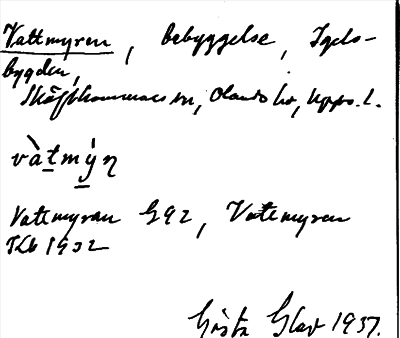 Vattmyren, bebyggelse, Igels-
bygden,
Skäfthammars sn, Olands hd, Upps. l.
vàt̲mý̲n
Vattmyran G92, Vattmyren
TKb 1932
Gösta Glav 1937.